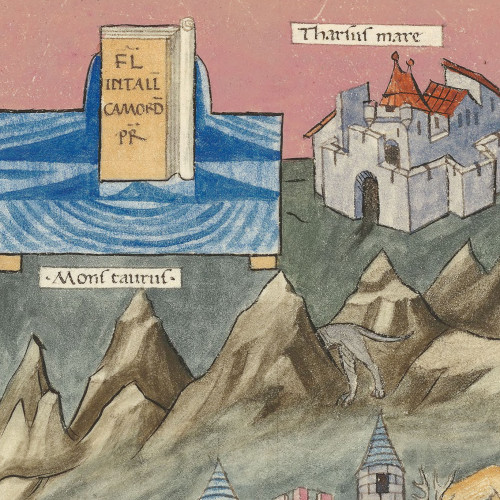 FL
INTALL
CAMORD
PR
Tharsus mare
·Mons taurus·